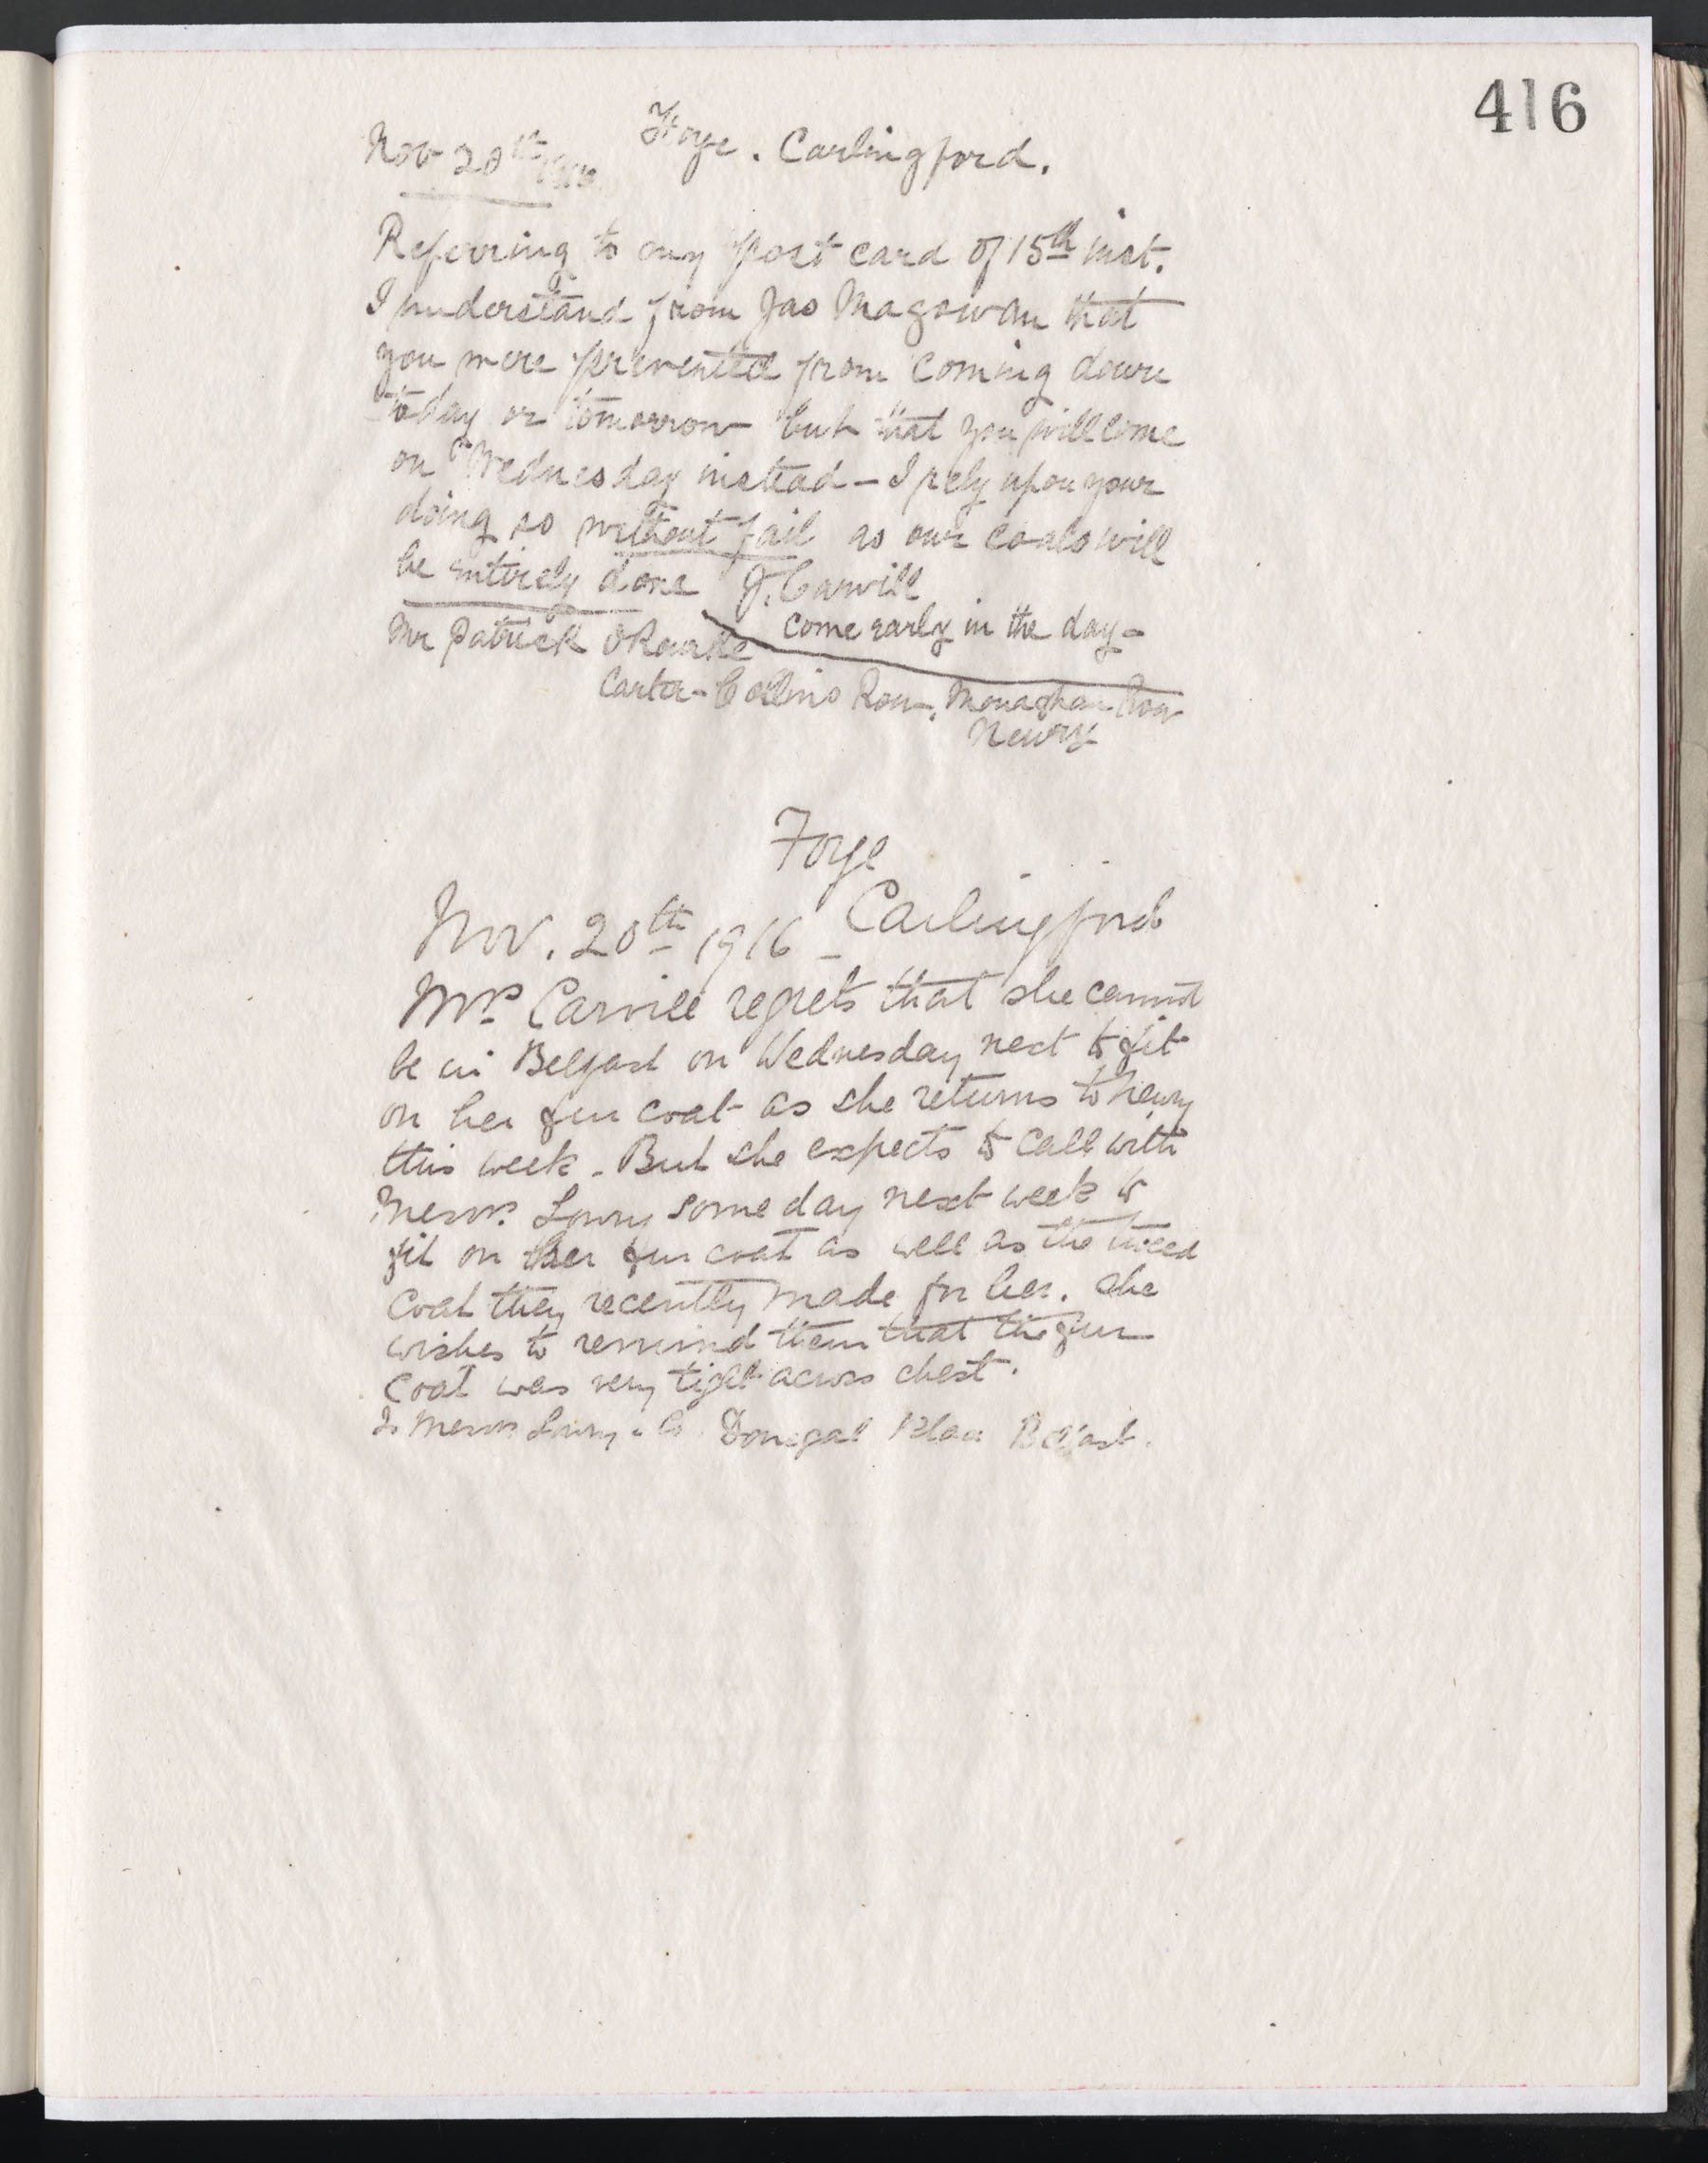 416
Nov 20th 1916 Foye. Carlingford.
Referring to my post card of 15th inst.
I understand from Jas Magowan that
you were prevented from coming down
today or tomorrow but that you will come
on Wednesday instead - I rely upon your
doing so without fail as our coals will
be entirely done J. Carvill
come early in the day -
Mr Patrick O'Rourke
Carter - Collins Row, Monaghan Row
Newry
Foye
Nov. 20th 1916 - Carlingford
Mrs Carvill regrets that she cannot
be in Belfast on Wednesday next to fit
on her fur coat as she returns to Newry
this week - But she expects to call with
Messrs. Lowry some day next week to
fit on her fur coat as well as the tweed
coat they recently made for her. She
wishes to remind them that the fur
coat was very tight across chest.
To Messrs Lowry & Co Donegal Place Belfast.